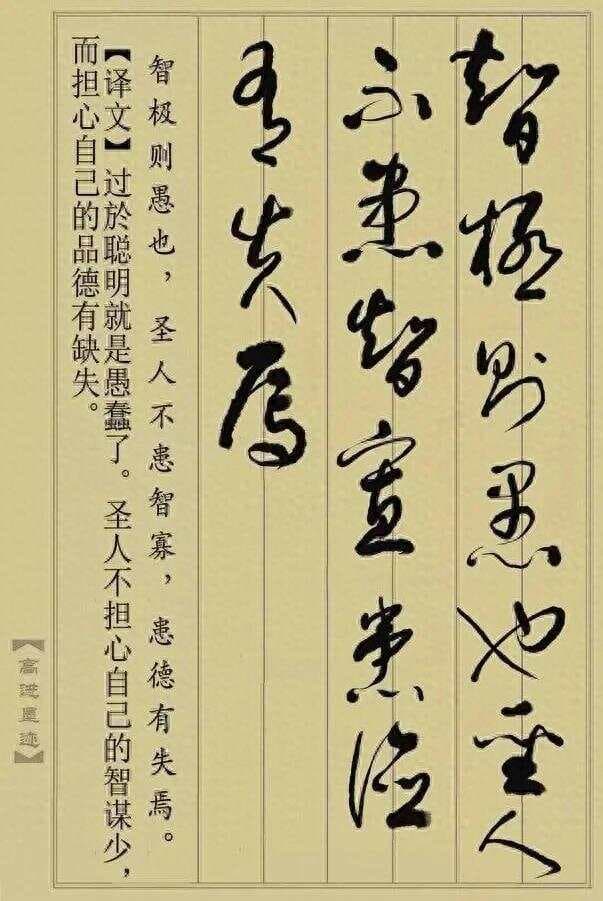 智極則愚也聖人
不患智寡患德
有失焉
智极则愚也，圣人不患智寡，患德有失焉。
【译文】过於聪明就是愚蠢了。圣人不担心自己的智谋少，
而担心自己的品德有缺失。
【高进墨迹】